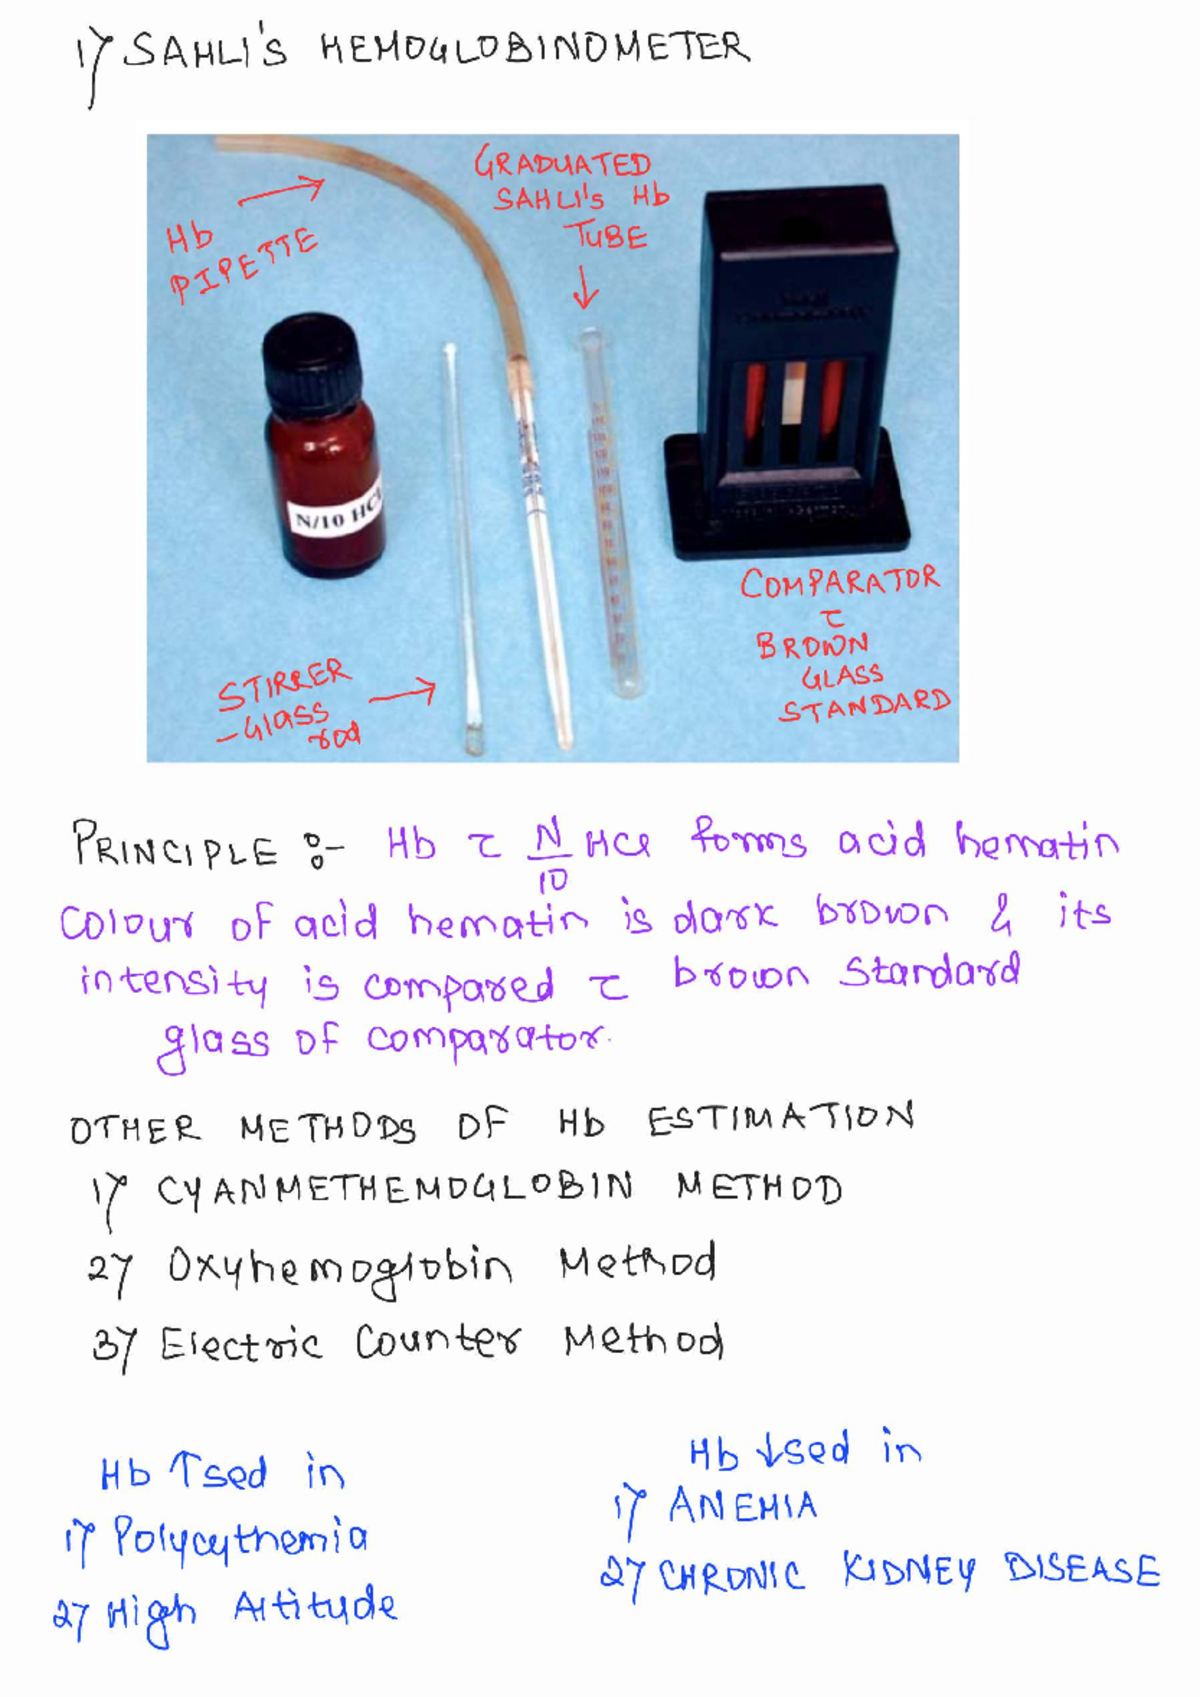 1) SAHLI'S HEMOGLOBINOMETER
GRADUATED
SAHLI'S Hb
TUBE
Hb
PIPETTE
N/10 HCl
COMPARATOR
c̄
BROWN
GLASS
STANDARD
STIRRER
- Glass
rod
PRINCIPLE :- Hb c̄ N/10 HCl forms acid hematin
colour of acid hematin is dark brown & its
intensity is compared c̄ brown standard
glass of comparator.
OTHER METHODS OF Hb ESTIMATION
1) CYANMETHEMOGLOBIN METHOD
2) Oxyhemoglobin Method
3) Electric Counter Method
Hb ↑sed in
1) Polycythemia
2) High Altitude
Hb ↓sed in
1) ANEMIA
2) CHRONIC KIDNEY DISEASE